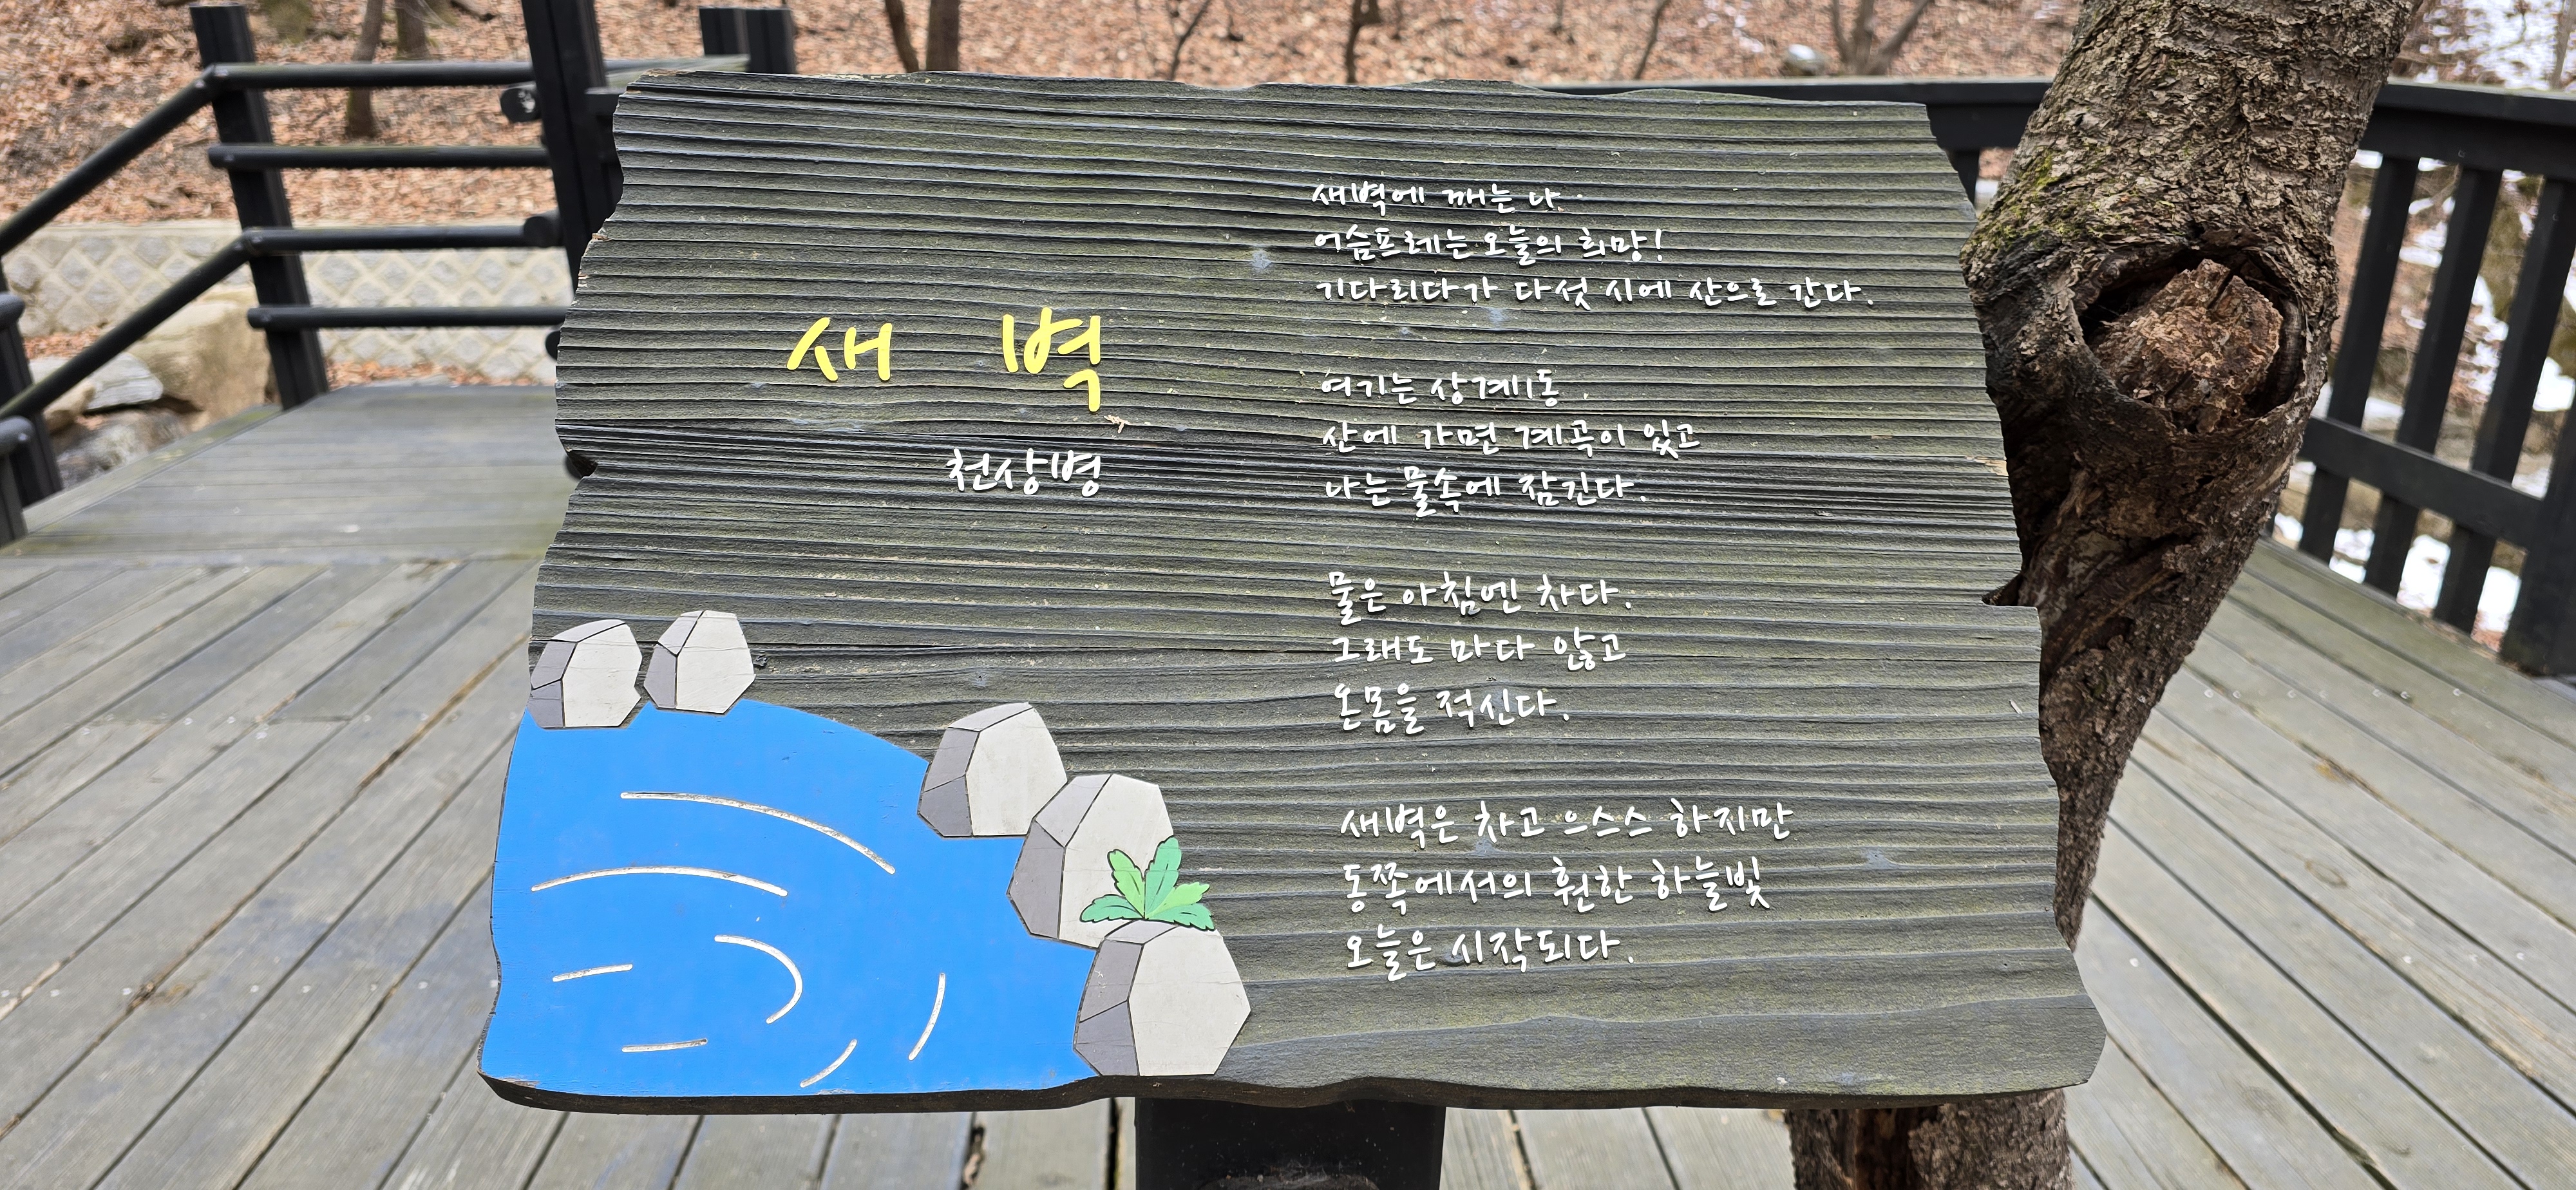 새벽
천상병
새벽에 깨는 나.
어슴프레는 오늘의 희망!
기다리다가 다섯 시에 산으로 간다.
여기는 상계1동
산에 가면 계곡이 있고
나는 물속에 잠긴다.
물은 아침엔 차다.
그래도 마다 않고
온몸을 적신다.
새벽은 차고 으스스 하지만
동쪽에서의 훤한 하늘빛
오늘은 시작되다.